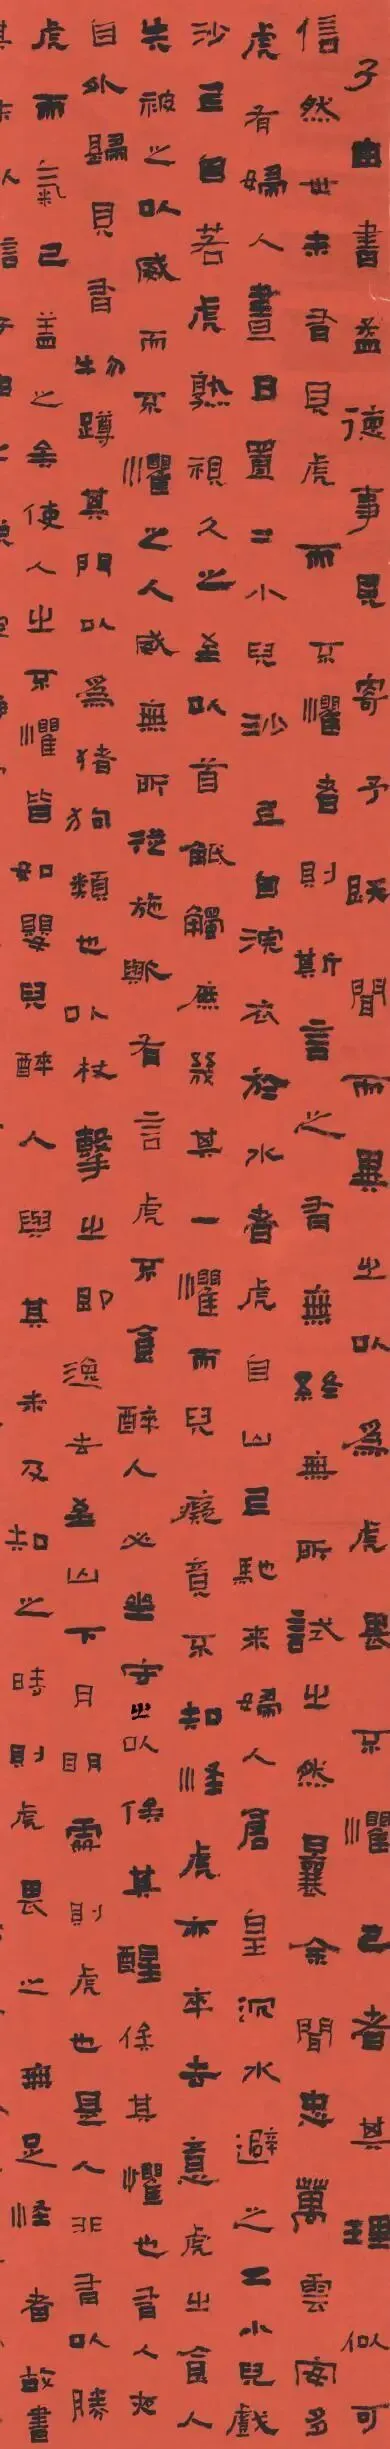 子由書孟德事見寄予既聞而異之以為虎畏不懼己者其理似可
信然世未有見虎而不懼者則斯言之有無終無所試之然曩余聞忠萬雲安多
虎有婦人晝日置二小兒沙上自浣衣於水者虎自山上馳來婦人倉皇沉水避之二小兒戲
沙上自若虎熟視久之至以首觝觸庶幾其一懼而兒癡竟不知怪虎亦卒去意虎之食人
先被之以威而不懼之人威無所從施歟有言虎不食醉人必坐守之以俟其醒俟其懼也有人夜
自外歸見有物蹲其門以為猪狗類也以杖擊之即逸去至山下月明處則虎也是人非有以勝
虎而氣已蓋之矣使人之不懼皆如嬰兒醉人與其未及知之時則虎畏之無足怪者故書